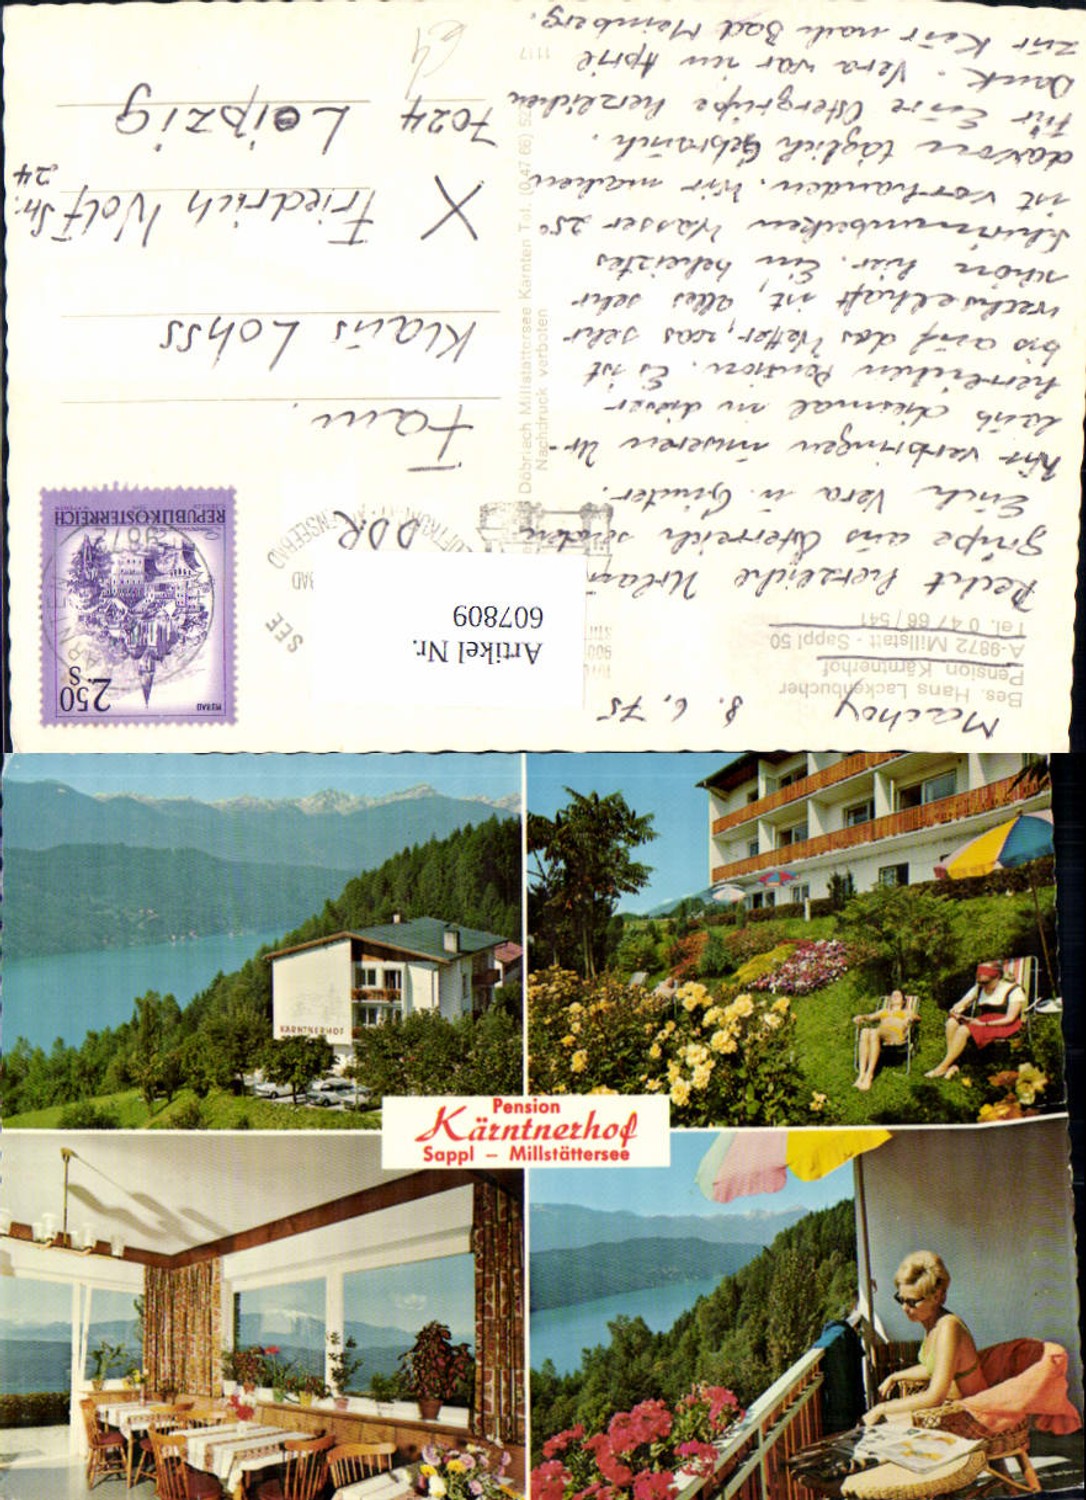 Machoy 8. 6. 75
Bes. Hans Lackenbucher
Pension Kärntnerhof
A-9872 Millstatt - Sappl 50
Tel. 0 47 66 / 541
Recht herzliche
Grüße aus Österreich senden
Euch Vera u. Günter.
Wir verbringen unseren Ur-
laub diesmal in dieser
herrlichen Pension. Es ist
bis auf das Wetter, was sehr
wechselhaft ist, alles sehr
schön hier. Ein beheiztes
Schwimmbecken Wasser 25°
ist vorhanden. Wir machen
davon täglich Gebrauch.
Für Eure Ostergrüße herzlichen
Dank. Vera war im April
zur Kur nach Bad Meinberg.
Döbriach Millstättersee Kärnten Tel. (0 47 66)
Nachdruck verboten
1117
Artikel Nr.
607809
SEE
DDR
2.50
S
MURAU
REPUBLIK ÖSTERREICH
9872
Fam.
Klaus Lohss
X Friedrich Wolf Str.
24
7024 Leipzig
64
KÄRNTNERHOF
Pension
Kärntnerhof
Sappl – Millstättersee